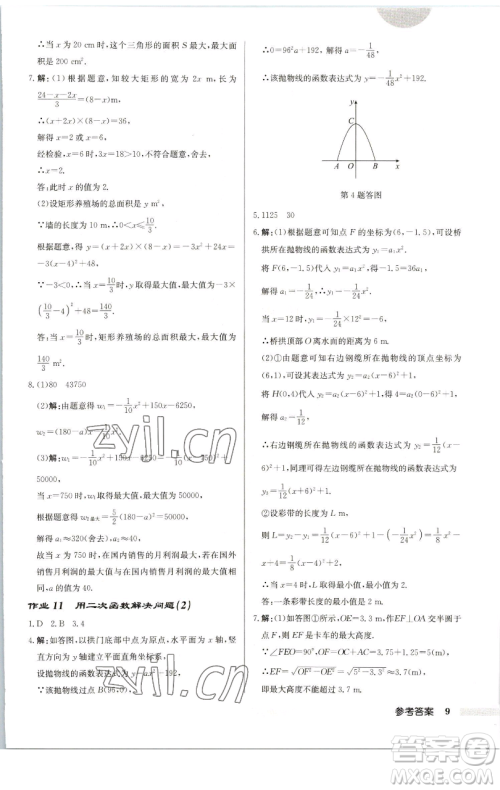 ∴当 x 为 20 cm 时,这个三角形的面积 S 最大,最大面
积是 200 cm².
7.解:(1)根据题意,知较大矩形的宽为 2x m,长为
(24-x-2x)/3=(8-x)m,
∴(x+2x)×(8-x)=36,
解得 x=2 或 x=6.
经检验,当 x=6 时,3x=18>10 不符合题意,舍去,
∴x=2.
答:此时 x 的值为 2.
(2)设矩形养殖场的总面积是 y m²,
∵墙的长度为 10 m,∴0<x≤10/3.
根据题意,得 y=(x+2x)×(8-x)=-3x²+24x=
-3(x-4)²+48,
∵-3<0,∴当 x=10/3 时,y 取最大值,最大值为 -3×
(10/3-4)²+48=140/3.
答:当 x=10/3 时,矩形养殖场的总面积最大,最大值为
140/3 m².
8.(1)80 43750
(2)解:由题意得 w₁=-1/10x²+150x-6250,
w₂=(180-a)x-
(3)解:w₁=-1/10x²+150x-6250=-1/10(x-750)²+
50000,
当 x=750 时,w₁ 取最大值,最大值为 50000.
根据题意,得 w₂最大=5/2(180-a)²=50000,
解得 a₁≈320(舍去),
故当 x=750 时,在国内销售的月利润最大,若在国外
销售月利润的最大值与在国内销售月利润的最大值
相同,a 的值为 40.
作业 11 用二次函数解决问题(2)
1.D 2.B 3.4
4.解:如图,以拱门底部中点为原点,水平方向为 x 轴,竖
直方向为 y 轴建立平面直角坐标系,
设抛物线的函数表达式为 y=ax²+192,
∵该抛物线过点 B(96,0),
∴0=a·96²+192,解得 a=-1/48,
∴该抛物线的函数表达式为 y=-1/48x²+192.
y
C
A O B x
第 4 题答图
5.1125 30
6.解:(1)根据题意可知点 F 的坐标为(6,-1.5),可设拱
桥所在抛物线的函数表达式为 y₁=a₁x².
将 F(6,-1.5)代入 y₁=a₁x²,得 -1.5=a₁·6²,
解得 a₁=-1/24,∴y₁=-1/24x².
当 x=12 时,y₁=-1/24×12²=-6,
∴桥拱顶部 O 离水面的距离为 6 m.
(2)①由题意可知右边钢缆所在抛物线的顶点坐标为
(6,1),可设其函数表达式为 y₂=a₂(x-6)²+1.
将 H(0,4)代入 y₂=a₂(x-6)²+1,得 4=a₂(0-6)²+1,
解得 a₂=1/12,
∴右边钢缆所在抛物线的函数表达式为 y₂=
1/12(x-6)²+1,同理可得左边钢缆所在抛物线的函
数表达式为 y₃=1/12(x+6)²+1.
②设彩带的长度为 L m,
则 L=y₂-y₁=1/12(x-6)²+1-(-1/24x²)=1/8x²-
x+4=1/8(x-4)²+2,
∴当 x=4 时,L 取最小值,最小值为 2.
答:一条彩带长度的最小值是 2 m.
7.解:设半圆的圆心为点 O,OE=3.3 m,EF⊥OA 交半圆于
点 F,则 EF 是卡车的最大限高.
∵∠FEO=90°,OF=5 m,OE=3.3 m,
∴EF=√(OF²-OE²)=√(5²-3.3²)>3.7(m),
即最大高度不能超过 3.7 m.
zyjl.cn
参考答案 9